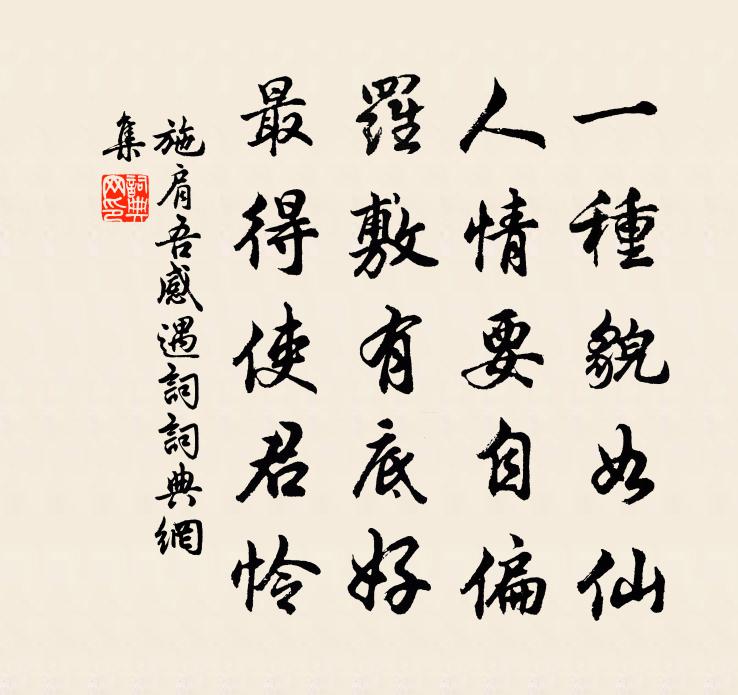 一種貌如仙
人情要自偏
羅敷有底好
最得使君怜
施肩吾感遇詞詞典網
集
詞典網印